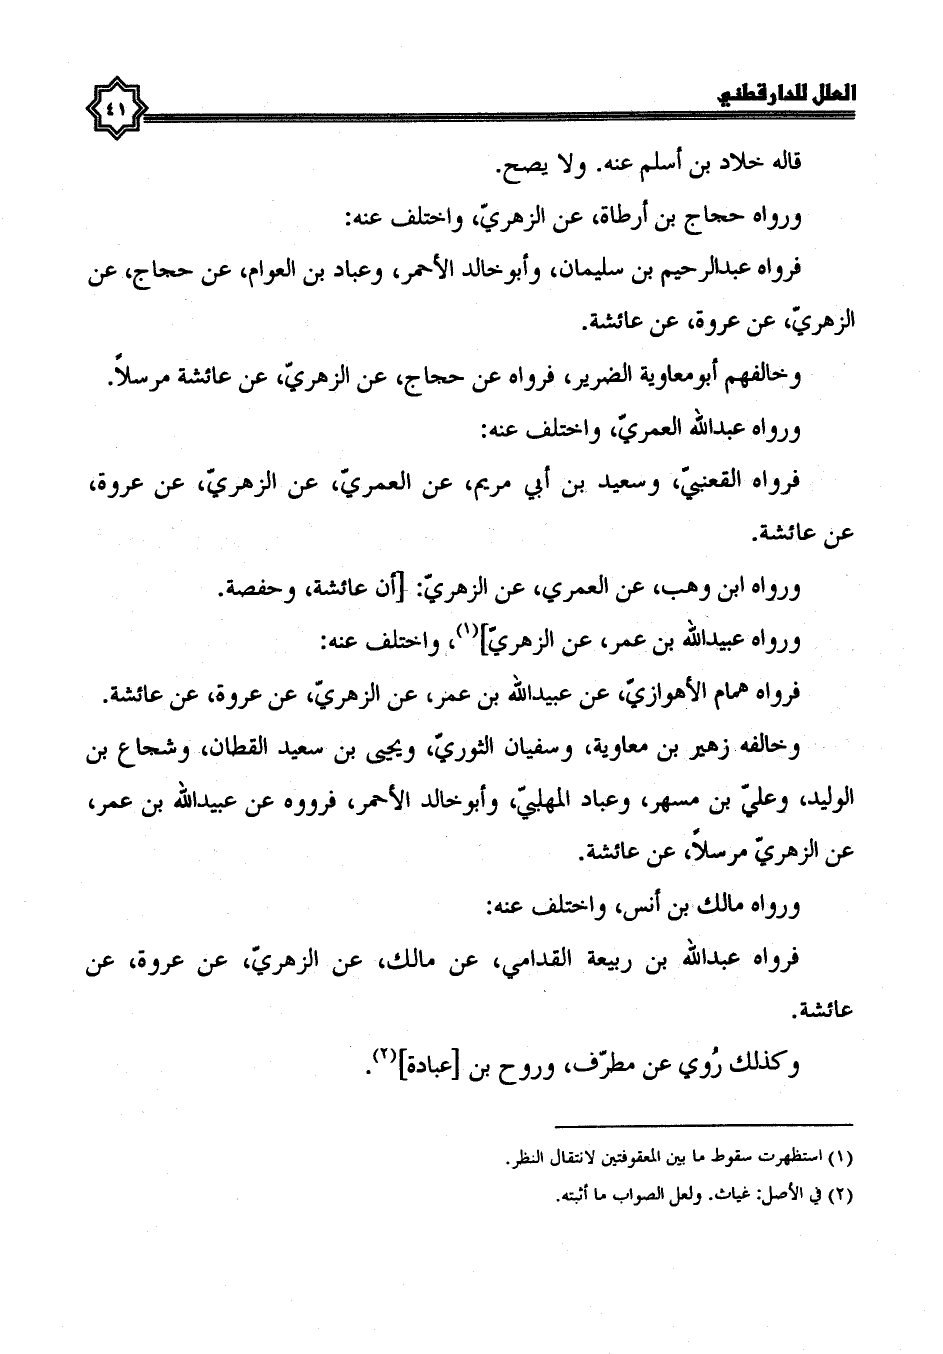 العلل للدارقطني
٤١
قاله خلاد بن أسلم عنه. ولا يصح.
ورواه حجاج بن أرطاة، عن الزهريّ، واختلف عنه:
فرواه عبدالرحيم بن سليمان، وأبو خالد الأحمر، وعباد بن العوام، عن حجاج، عن
الزهريّ، عن عروة، عن عائشة.
وخالفهم أبو معاوية الضرير، فرواه عن حجاج، عن الزهريّ، عن عائشة مرسلاً.
ورواه عبدالله العمريّ، واختلف عنه:
فرواه القعنبيّ، وسعيد بن أبي مريم، عن العمريّ، عن الزهريّ، عن عروة،
عن عائشة.
ورواه ابن وهب، عن العمري، عن الزهريّ: [أن عائشة، وحفصة.
ورواه عبيدالله بن عمر، عن الزهريّ](١)، واختلف عنه:
فرواه همام الأهوازيّ، عن عبيدالله بن عمر، عن الزهريّ، عن عروة، عن عائشة.
وخالفه زهير بن معاوية، وسفيان الثوريّ، ويحيى بن سعيد القطان، وشجاع بن
الوليد، وعليّ بن مسهر، وعباد المهلبيّ، وأبو خالد الأحمر، فرووه عن عبيدالله بن عمر،
عن الزهريّ مرسلاً، عن عائشة.
ورواه مالك بن أنس، واختلف عنه:
فرواه عبدالله بن ربيعة القدامي، عن مالك، عن الزهريّ، عن عروة، عن
عائشة.
وكذلك رُوي عن مطرّف، وروح بن [عبادة](٢).
(١) استظهرت سقوط ما بين المعقوفتين لانتقال النظر.
(٢) في الأصل: غياث. ولعل الصواب ما أثبته.